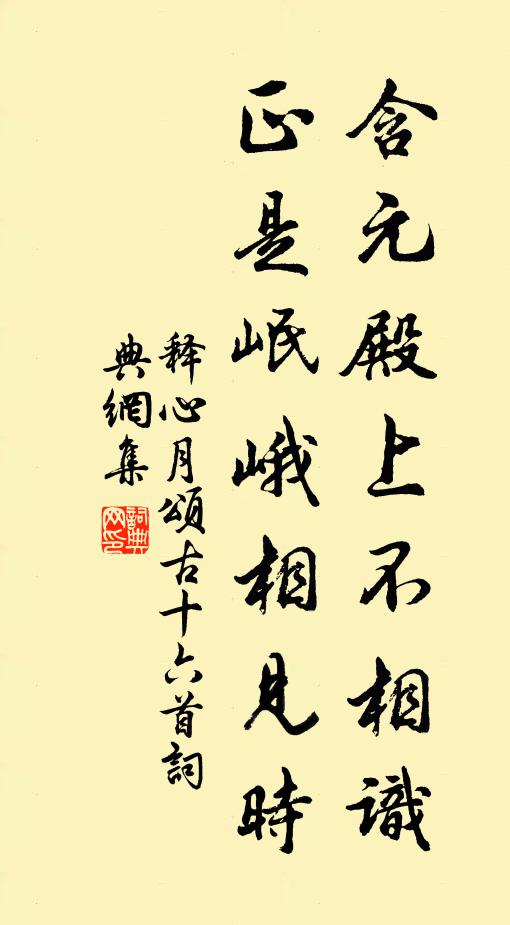 含元殿上不相識
正是岷峨相見時
释心月頌古十六首詞
典網集
詞典网印